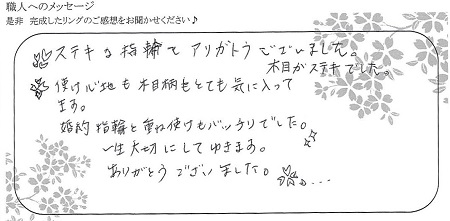 職人へのメッセージ
是非 完成したリングのご感想をお聞かせください♪
ステキな指輪をアリガトウございました。
木目がステキでした。
使け心地も木目柄もとても気に入って
ます。
婚約指輪と重ね使けもバッチリでした。
一生大切にしてゆきます。
ありがとうございました。